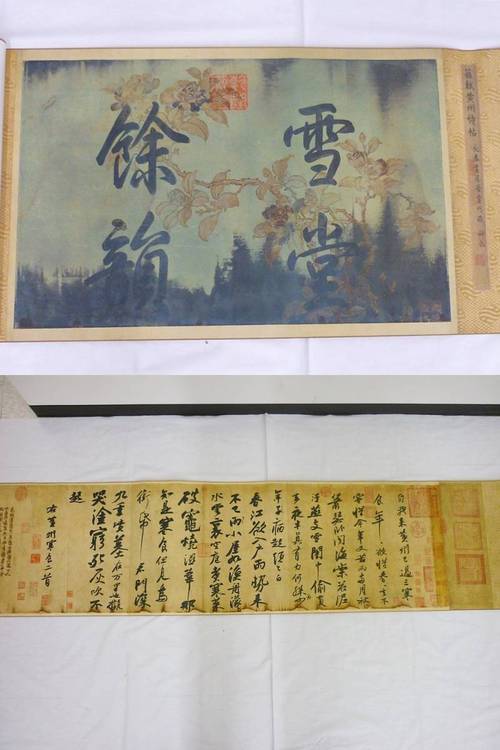 雪堂
餘韻
自我来黃州已過三寒
食年〃欲惜春〃去不
容惜今年又苦雨兩月秋
蕭瑟卧聞海棠花泥
汙燕支雪闇中偷負
去夜半真有力何殊少
年子病起頭已白
春江欲入戶雨勢来
不已雨小屋如漁舟濛〃
水雲裏空庖煑寒菜
破竈燒濕葦那
知是寒食但見烏
銜帋君門深
九重墳墓在万里也擬
哭塗窮死灰吹不
起
右黃州寒食二首